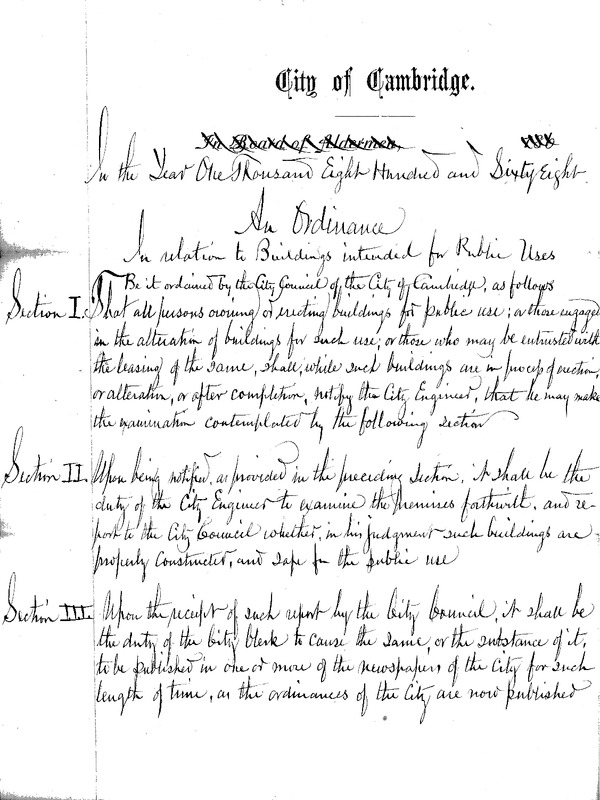 City of Cambridge.
In Board of Aldermen,
In the Year One Thousand Eight Hundred and Sixty Eight.
An Ordinance
In relation to Buildings intended for Public Uses
Be it ordained by the City Council of the City of Cambridge, as follows
Section I. That all persons owning or erecting buildings for public use; or those engaged
in the alteration of buildings for such use; or those who may be entrusted with
the leasing of the same, shall, while such buildings are in process of erection,
or alteration, or after completion, notify the City Engineer, that he may make
the examination contemplated by the following section
Section II. Upon being notified, as provided in the preceding section, it shall be the
duty of the City Engineer to examine the premises forthwith, and re-
port to the City Council whether, in his judgment such buildings are
properly constructed, and safe for the public use
Section III. Upon the receipt of such report by the City Council, it shall be
the duty of the City Clerk to cause the same, or the substance of it,
to be published in one or more of the newspapers of the City for such
length of time, as the ordinances of the City are now published